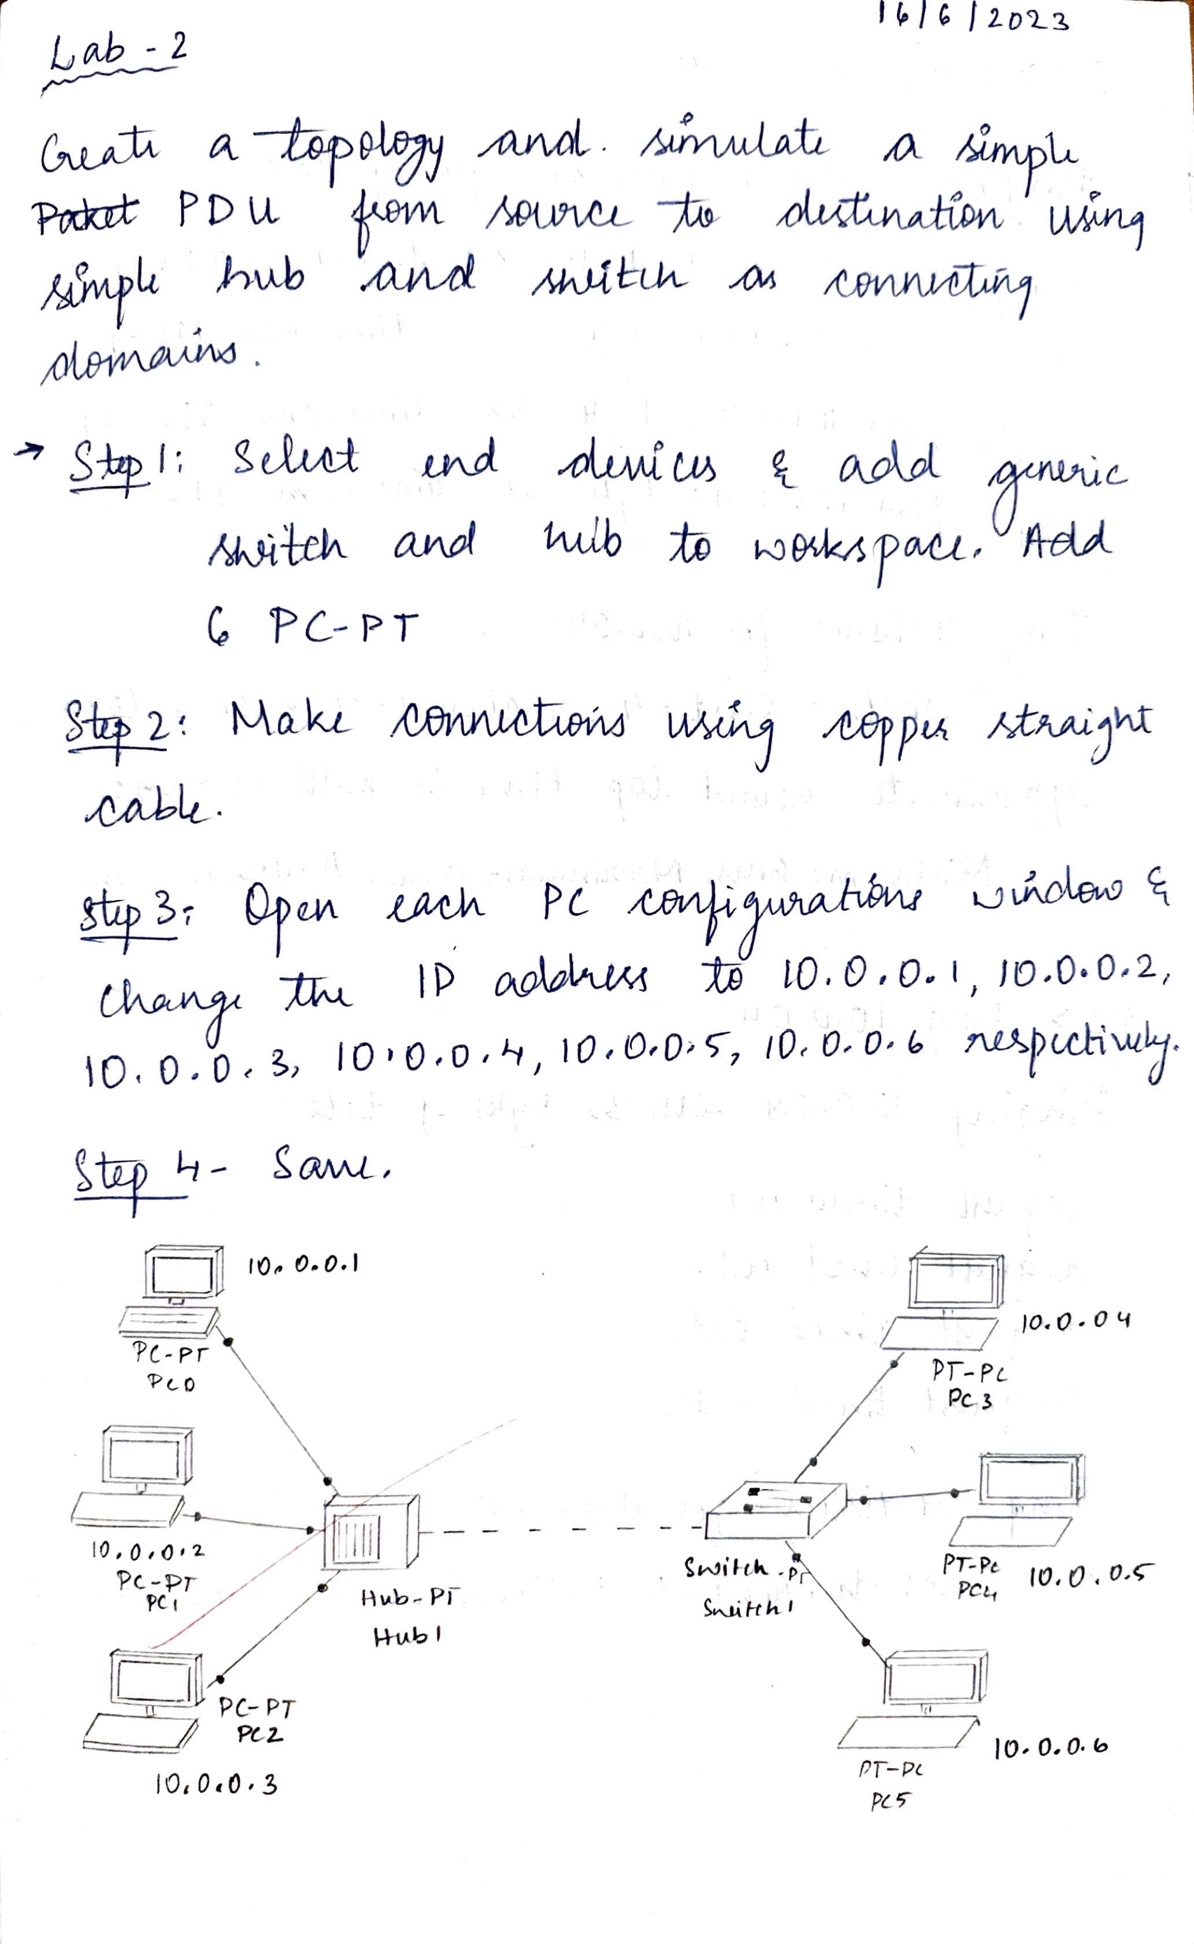 16/6/2023
Lab - 2
Create a topology and. simulate a simple
Packet PDU from source to destination using
simple hub and switch as connecting
domains.
→ Step 1: Select end devices & add generic
switch and hub to workspace. Add
6 PC-PT
Step 2: Make connections using copper straight
cable.
Step 3: Open each PC configurations window &
change the IP address to 10.0.0.1, 10.0.0.2,
10.0.0.3, 10.0.0.4, 10.0.0.5, 10.0.0.6 respectively.
Step 4- Save.
10.0.0.1
PC-PT
PC0
10.0.04
PT-PC
PC3
10.0.0.2
PC-PT
PC1
Hub-PT
Hub1
Switch-PT
Switch1
PT-PC
PC4
10.0.0.5
PC-PT
PC2
10.0.0.3
10.0.0.6
PT-PC
PC5